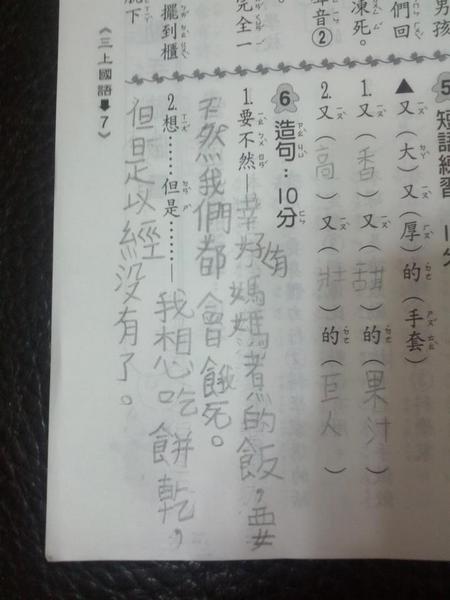 男孩
們回
凍死。
聲音②
完全一
擺到櫃
下
5 短語練習
▲又(大)又(厚)的(手套)
1.又(香)又(甜)的(果汁)
2.又(高)又(壯)的(巨人)
6 造句：10分
1.要不然—幸好有媽媽煮的飯，要
不然我們都會餓死。
2.想……但是……—我想吃餅乾，
但是以經沒有了。
《三上國語⬇7》